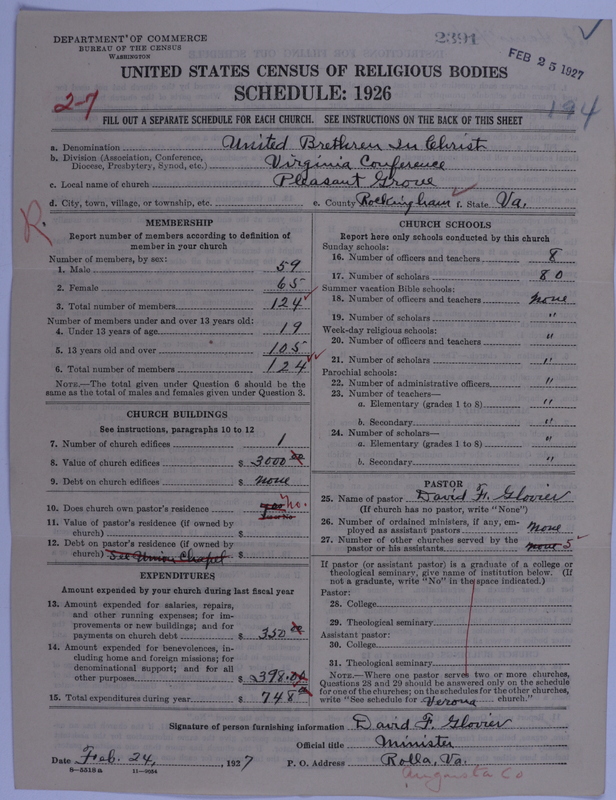 DEPARTMENT OF COMMERCE
BUREAU OF THE CENSUS
WASHINGTON
2391
FEB 25 1927
UNITED STATES CENSUS OF RELIGIOUS BODIES
SCHEDULE: 1926
2-7
194
FILL OUT A SEPARATE SCHEDULE FOR EACH CHURCH. SEE INSTRUCTIONS ON THE BACK OF THIS SHEET
a. Denomination United Brethren In Christ
b. Division (Association, Conference, Diocese, Presbytery, Synod, etc.) Virginia Conference
c. Local name of church Pleasant Grove
d. City, town, village, or township, etc. e. County Rockingham f. State Va.
R.
MEMBERSHIP
Report number of members according to definition of
member in your church
Number of members, by sex:
1. Male 59
2. Female 65
3. Total number of members 124
Number of members under and over 13 years old:
4. Under 13 years of age 19
5. 13 years old and over 105
6. Total number of members 124
NOTE.—The total given under Question 6 should be
same as the total of males and females given under Question 3.
CHURCH BUILDINGS
See instructions, paragraphs 10 to 12
7. Number of church edifices 1
8. Value of church edifices $ 3000 00
9. Debt on church edifices $ none
10. Does church own pastor's residence no.
11. Value of pastor's residence (if owned by
church) $
12. Debt on pastor's residence (if owned by
church) See Union Chapel $
EXPENDITURES
Amount expended by your church during last fiscal year
13. Amount expended for salaries, repairs,
and other running expenses; for im-
provements or new buildings; and for
payments on church debt $ 350 00
14. Amount expended for benevolences, in-
cluding home and foreign missions; for
denominational support; and for all
other purposes $ 398.
15. Total expenditures during year $ 748
CHURCH SCHOOLS
Report here only schools conducted by this church
Sunday schools:
16. Number of officers and teachers 8
17. Number of scholars 80
Summer vacation Bible schools:
18. Number of officers and teachers none
19. Number of scholars "
Week-day religious schools:
20. Number of officers and teachers "
21. Number of scholars "
Parochial schools:
22. Number of administrative officers "
23. Number of teachers—
a. Elementary (grades 1 to 8) "
b. Secondary "
24. Number of scholars—
a. Elementary (grades 1 to 8) "
b. Secondary "
PASTOR
25. Name of pastor David F. Glovier
(If church has no pastor, write "None")
26. Number of ordained ministers, if any, em-
ployed as assistant pastors none
27. Number of other churches served by the
pastor or his assistants none 5
If pastor (or assistant pastor) is a graduate of a college or
theological seminary, give name of institution below. (If
not a graduate, write "No" in the space indicated.)
Pastor:
28. College
29. Theological seminary
Assistant pastor:
30. College
31. Theological seminary
NOTE.—Where one pastor serves two or more churches,
Questions 28 and 29 should be answered only on the schedule
for one of the churches; on the schedules for the other churches,
write "See schedule for Verona church."
Signature of person furnishing information David F. Glovier
Official title Minister
Date Feb. 24, 1927 P. O. Address Rolla, Va.
8-5518a 11-9084
Augusta Co